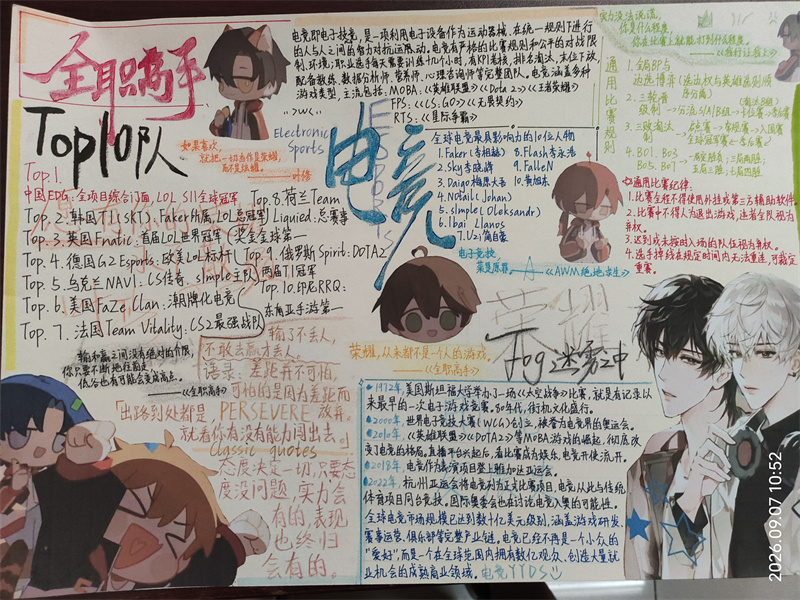 全职高手
Top10队
Top.1.
中国EDG:全项目综合门面,LOL S11全球冠军
Top.2.韩国T1(SKT):Faker所属,LOL总冠军
Top.3.英国Fnatic:首届LOL世界冠军
Top.4.德国G2 Esports:欧美LOL标杆
Top.5.乌克兰NAVI:CS传奇,simple主队
Top.6.美国FaZe Clan:潮牌化电竞
Top.7.法国Team Vitality:CS2最强战队
Top.8.荷兰Team
Liquied:总赛事
奖金全球第一
Top.9.俄罗斯Spirit:DOTA2
两届TI冠军
Top.10.印尼RRQ:
东南亚手游第一
如果喜欢,
就把一切当作是荣耀,
而不是炫耀。
——叶修
电竞即电子竞技,是一项利用电子设备作为运动器械,在统一规则下进行
的人与人之间的智力对抗运动。电竞有严格的比赛规则和公平的对战限
制,环境;职业选手每天需要训练十几个小时,有KPI考核,排名淘汰,末位下放,
配备教练,数据分析师,营养师,心理咨询师等完整团队。电竞涵盖多种
游戏类型,主流包括:MOBA:《英雄联盟》《Dota2》《王者荣耀》
FPS:《CS:GO》《无畏契约》
RTS:《星际争霸》
Electronic
Sports
ESPORTS
电竞
全球电竞最具影响力的10位人物
1.Faker(李相赫)
2.Sky李晓峰
3.Daigo梅原大吾
4.N0tail(Johan)
5.s1mple(Oleksandr)
6.Ibai Llanos
7.Uzi简自豪
8.Flash李永浩
9.FalleN
10.黄旭东
电子竞技,
菜是原罪。
——《AWM绝地求生》
实力没法说谎,
你是什么程度,
你在比赛上就能打到什么程度。
通用比赛规则
1.全局BP与
边选博弈(选边权与英雄禁则顺
序分离)
2.三轮晋
级制
3.三败淘汰
4.BO1、BO3
BO5、BO7
通用比赛纪律:
1.比赛全程不得使用外挂或第三方辅助软件
2.比赛中不得人为退出游戏,违者全队视为
弃权。
3.迟到或未按时入场的队伍视为弃权。
4.选手掉线在规定时间内无法重连,可裁定
重赛。
荣耀
Fog迷雾之中
荣耀,从来都不是一个人的游戏。
——《全职高手》
输和赢之间没有绝对的界限,
你只要不断地往前走,
低谷也有可能会变成高点。
——《全职高手》
输了不丢人,
不敢去赢才丢人。
语录:差距并不可怕,
可怕的是因为差距而
放弃。
「出路到处都是,PERSEVERE
就看你有没有能力闯出去。」
Classic quotes
态度决定一切,只要态
度没问题,实力会
有的,表现
也终归
会有的。
1972年,美国斯坦福大学举办了一场《太空战争》比赛,就是有记录以
来最早的一次电子游戏竞赛。80年代,街机文化盛行。
2000年,世界电子竞技大赛(WCG)创立,被誉为电竞界的奥运会。
2010年,《英雄联盟》《DOTA2》等MOBA游戏的崛起,彻底改
变了电竞的格局。直播平台兴起后,看比赛成为娱乐,电竞开使流行。
2018年,电竞作为表演项目登上雅加达亚运会。
2022年,杭州亚运会将电竞列为正式比赛项目,电竞从此与传统
体育项目同台竞技。国际奥委会也在讨论电竞入奥的可能性。
全球电竞市场规模已达到数十亿美元级别,涵盖游戏研发
赛事运营、俱乐部等完整产业链。电竞已经不再是一个小众的
“爱好”,而是一个在全球范围内拥有数亿观众、创造大量就
业机会的成熟商业领域。电竞YYDS
2026.09.07 10:52